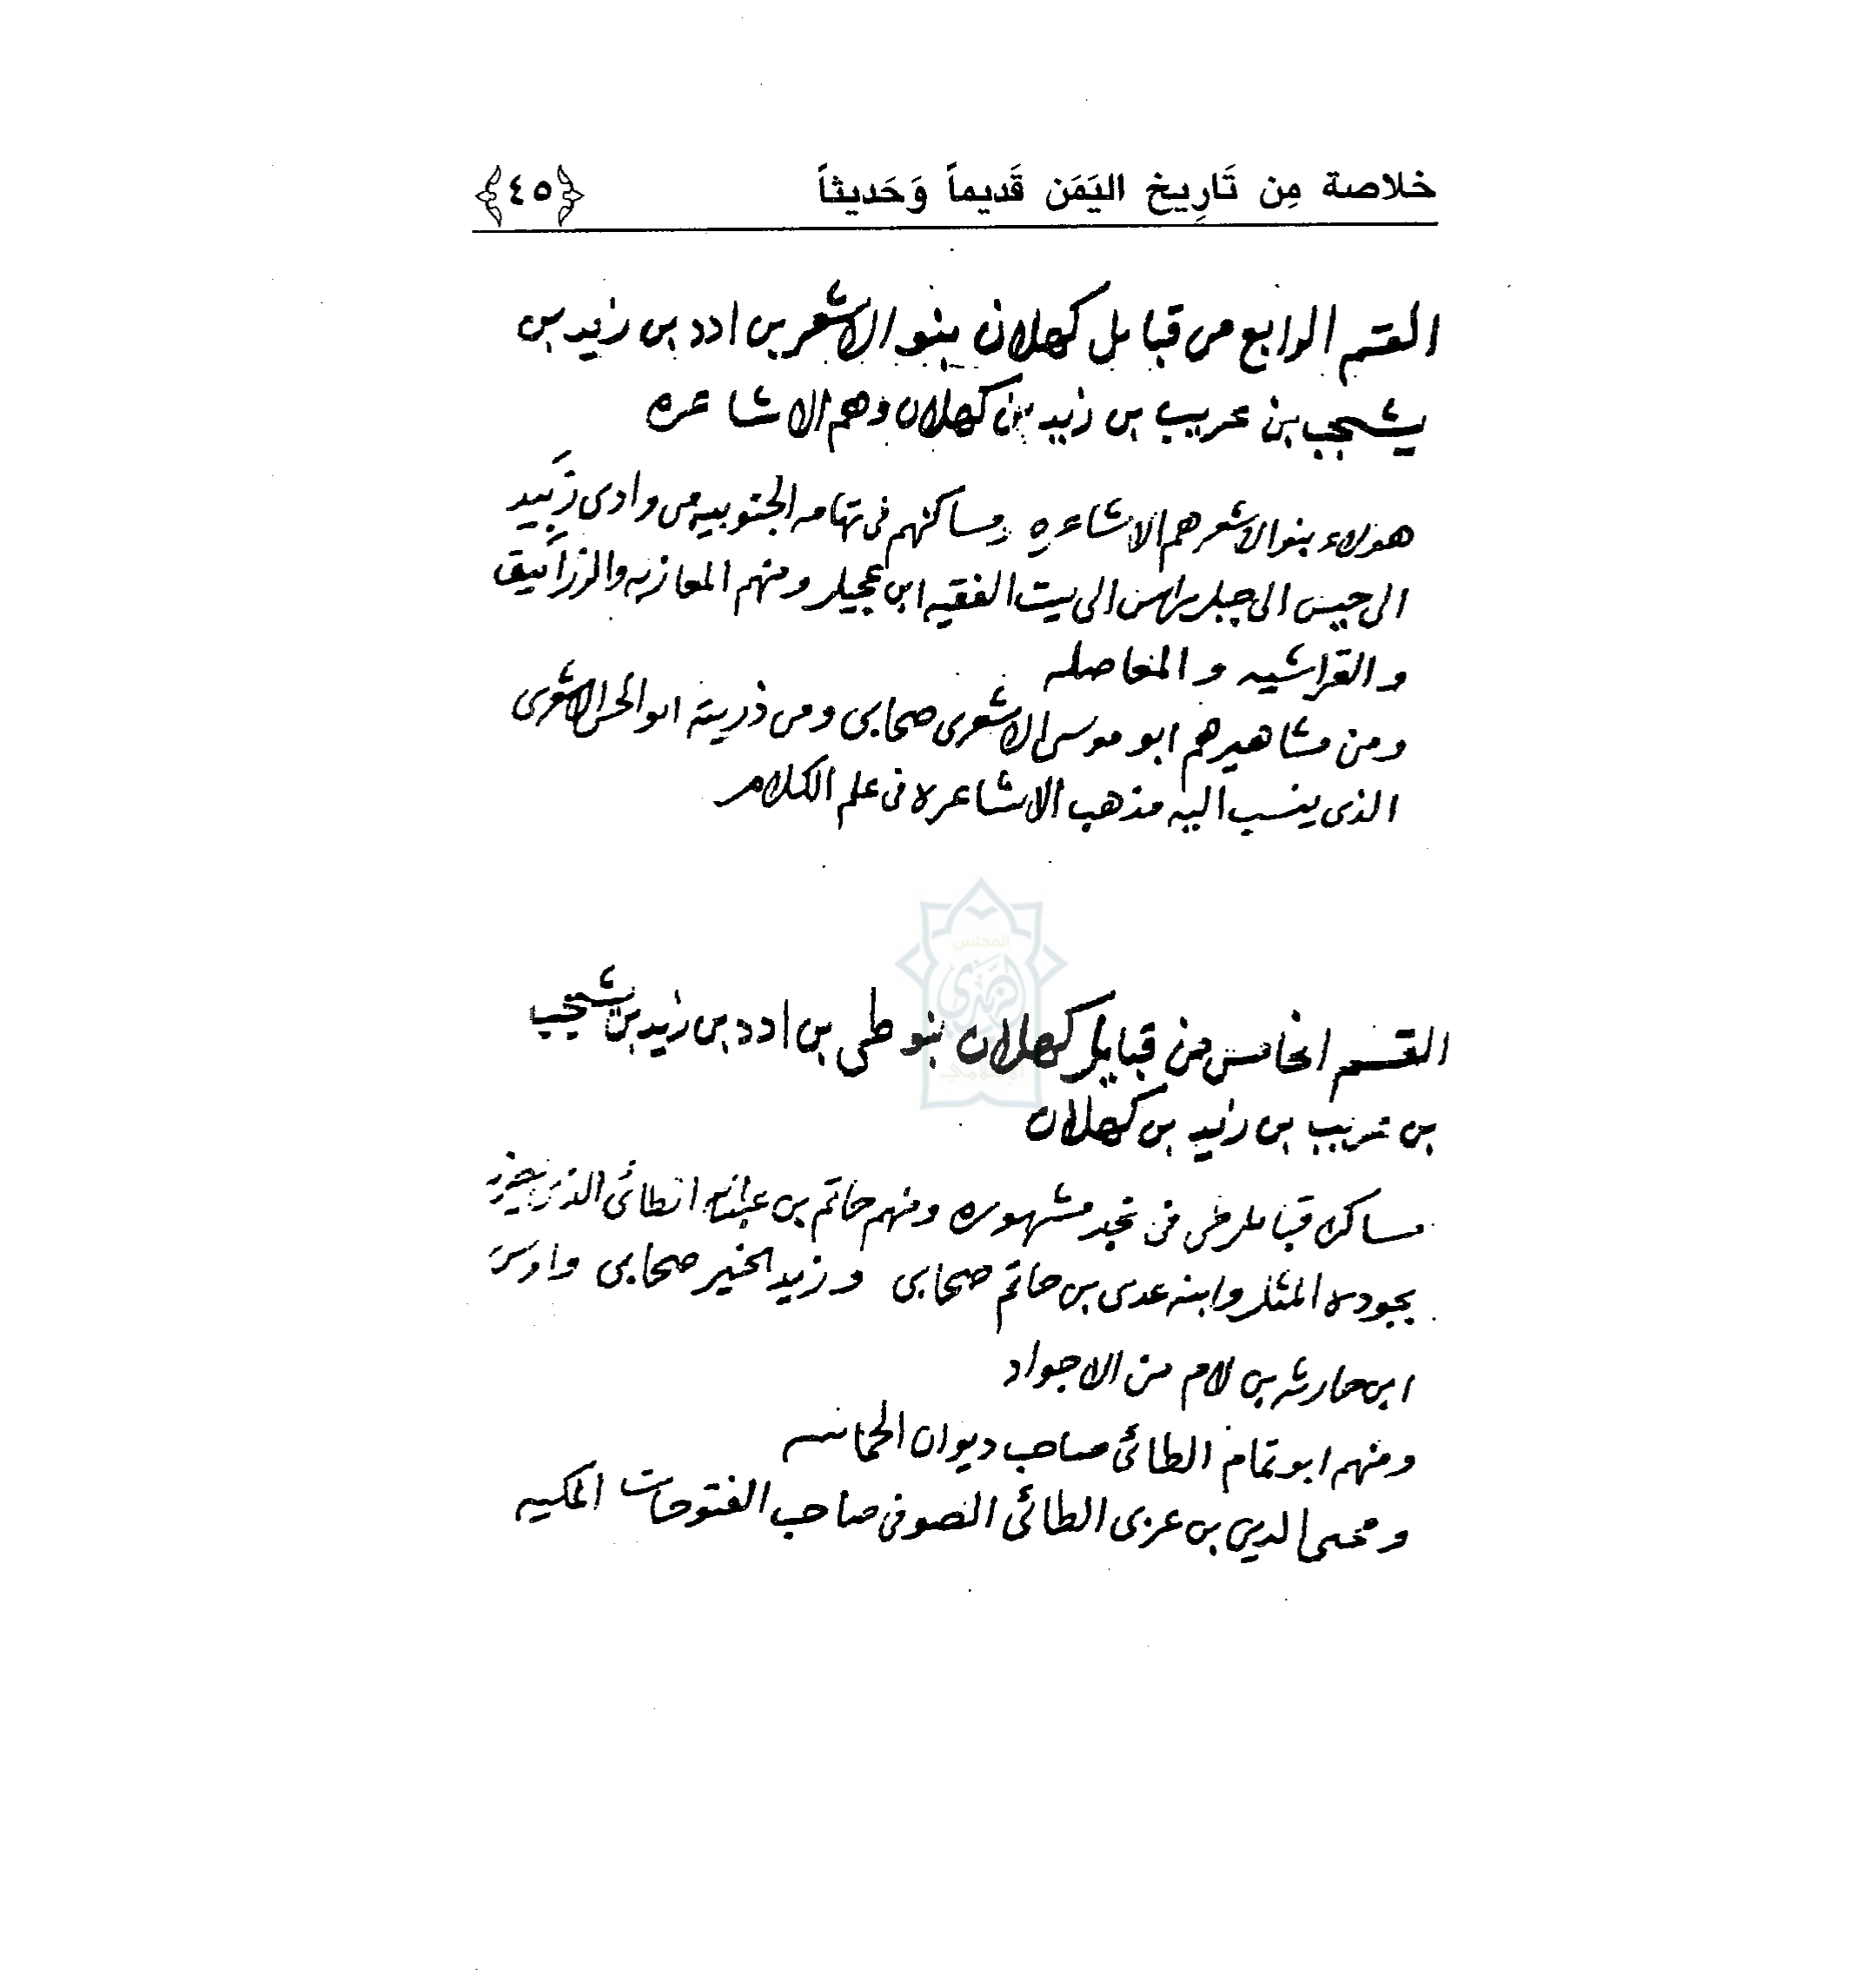 خلاصة مِن تَارِيخ اليَمَن قَديماً وَحَديثاً
﴿٤٥﴾
القسم الرابع من قبايل كهلان بنو الاشعر بن ادد بن زيد بن
يشجب بن عريب بن زيد بن كهلان وهم الاشاعره
هولاء بنو الاشعر هم الاشاعره ومساكنهم في تهامه الجنوبيه من وادى زَبيد
الى حيس الى جبل راس الى بيت الفقيه ابن عجيل ومنهم المعازبه والزرانيق
والقراشيه والمعاصله
ومن مشاهيرهم ابو موسى الاشعرى صحابى ومن ذريته ابو الحسن الاشعرى
الذى ينسب اليه مذهب الاشاعره في علم الكلام
المجلس
الإسلامي
القسم الخامس من قبايل كهلان بنو طى بن ادد بن زيد بن يشجب
بن عريب بن زيد بن كهلان
مساكن قبايل طى في نجد مشهوره ومنهم حاتم بن عبدالله الطائى الذى يضرب
بجوده المثل وابنه عدى بن حاتم صحابى وزيد الخير صحابى واوس
ابن حارثه بن لام من الاجواد
ومنهم ابو تمام الطائى صاحب ديوان الحماسه
ومحيى الدين بن عربى الطائى الصوفى صاحب الفتوحات المكيه